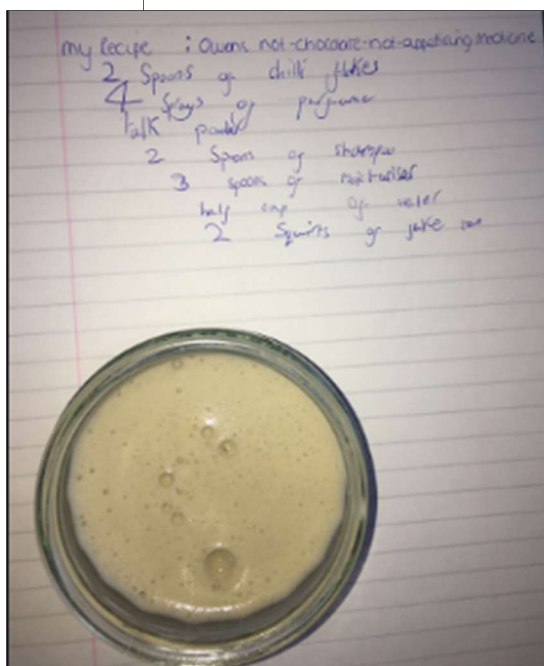 my Recipe : Owens not-chocolate-not-appetising medicine
2 Spoons of chilli flakes
4 Sprays of perfume
Talk powder
2 Spoons of shampoo
3 spoons of moisturiser
half cup of water
2 Squirts of fake